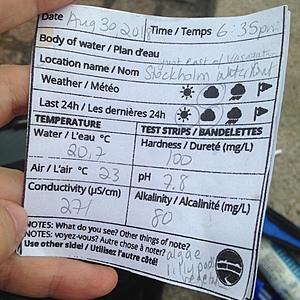 Date Aug 30 201 Time / Temps 6:35pm
Body of water / Plan d'eau
Location name / Nom Stockholm Waterfront
Weather / Météo
Last 24h / Les dernières 24h
TEMPERATURE TEST STRIPS / BANDELETTES
Water / L'eau °C Hardness / Dureté (mg/L)
20,7 100
Air / L'air °C 23 pH 7.8
Conductivity (µS/cm) Alkalinity / Alcalinité (mg/L)
271 80
NOTES: What do you see? Other things of note?
NOTES: voyez-vous? Autre chose à noter? algae
Use other side! / Utilisez l'autre côté! lilly pads